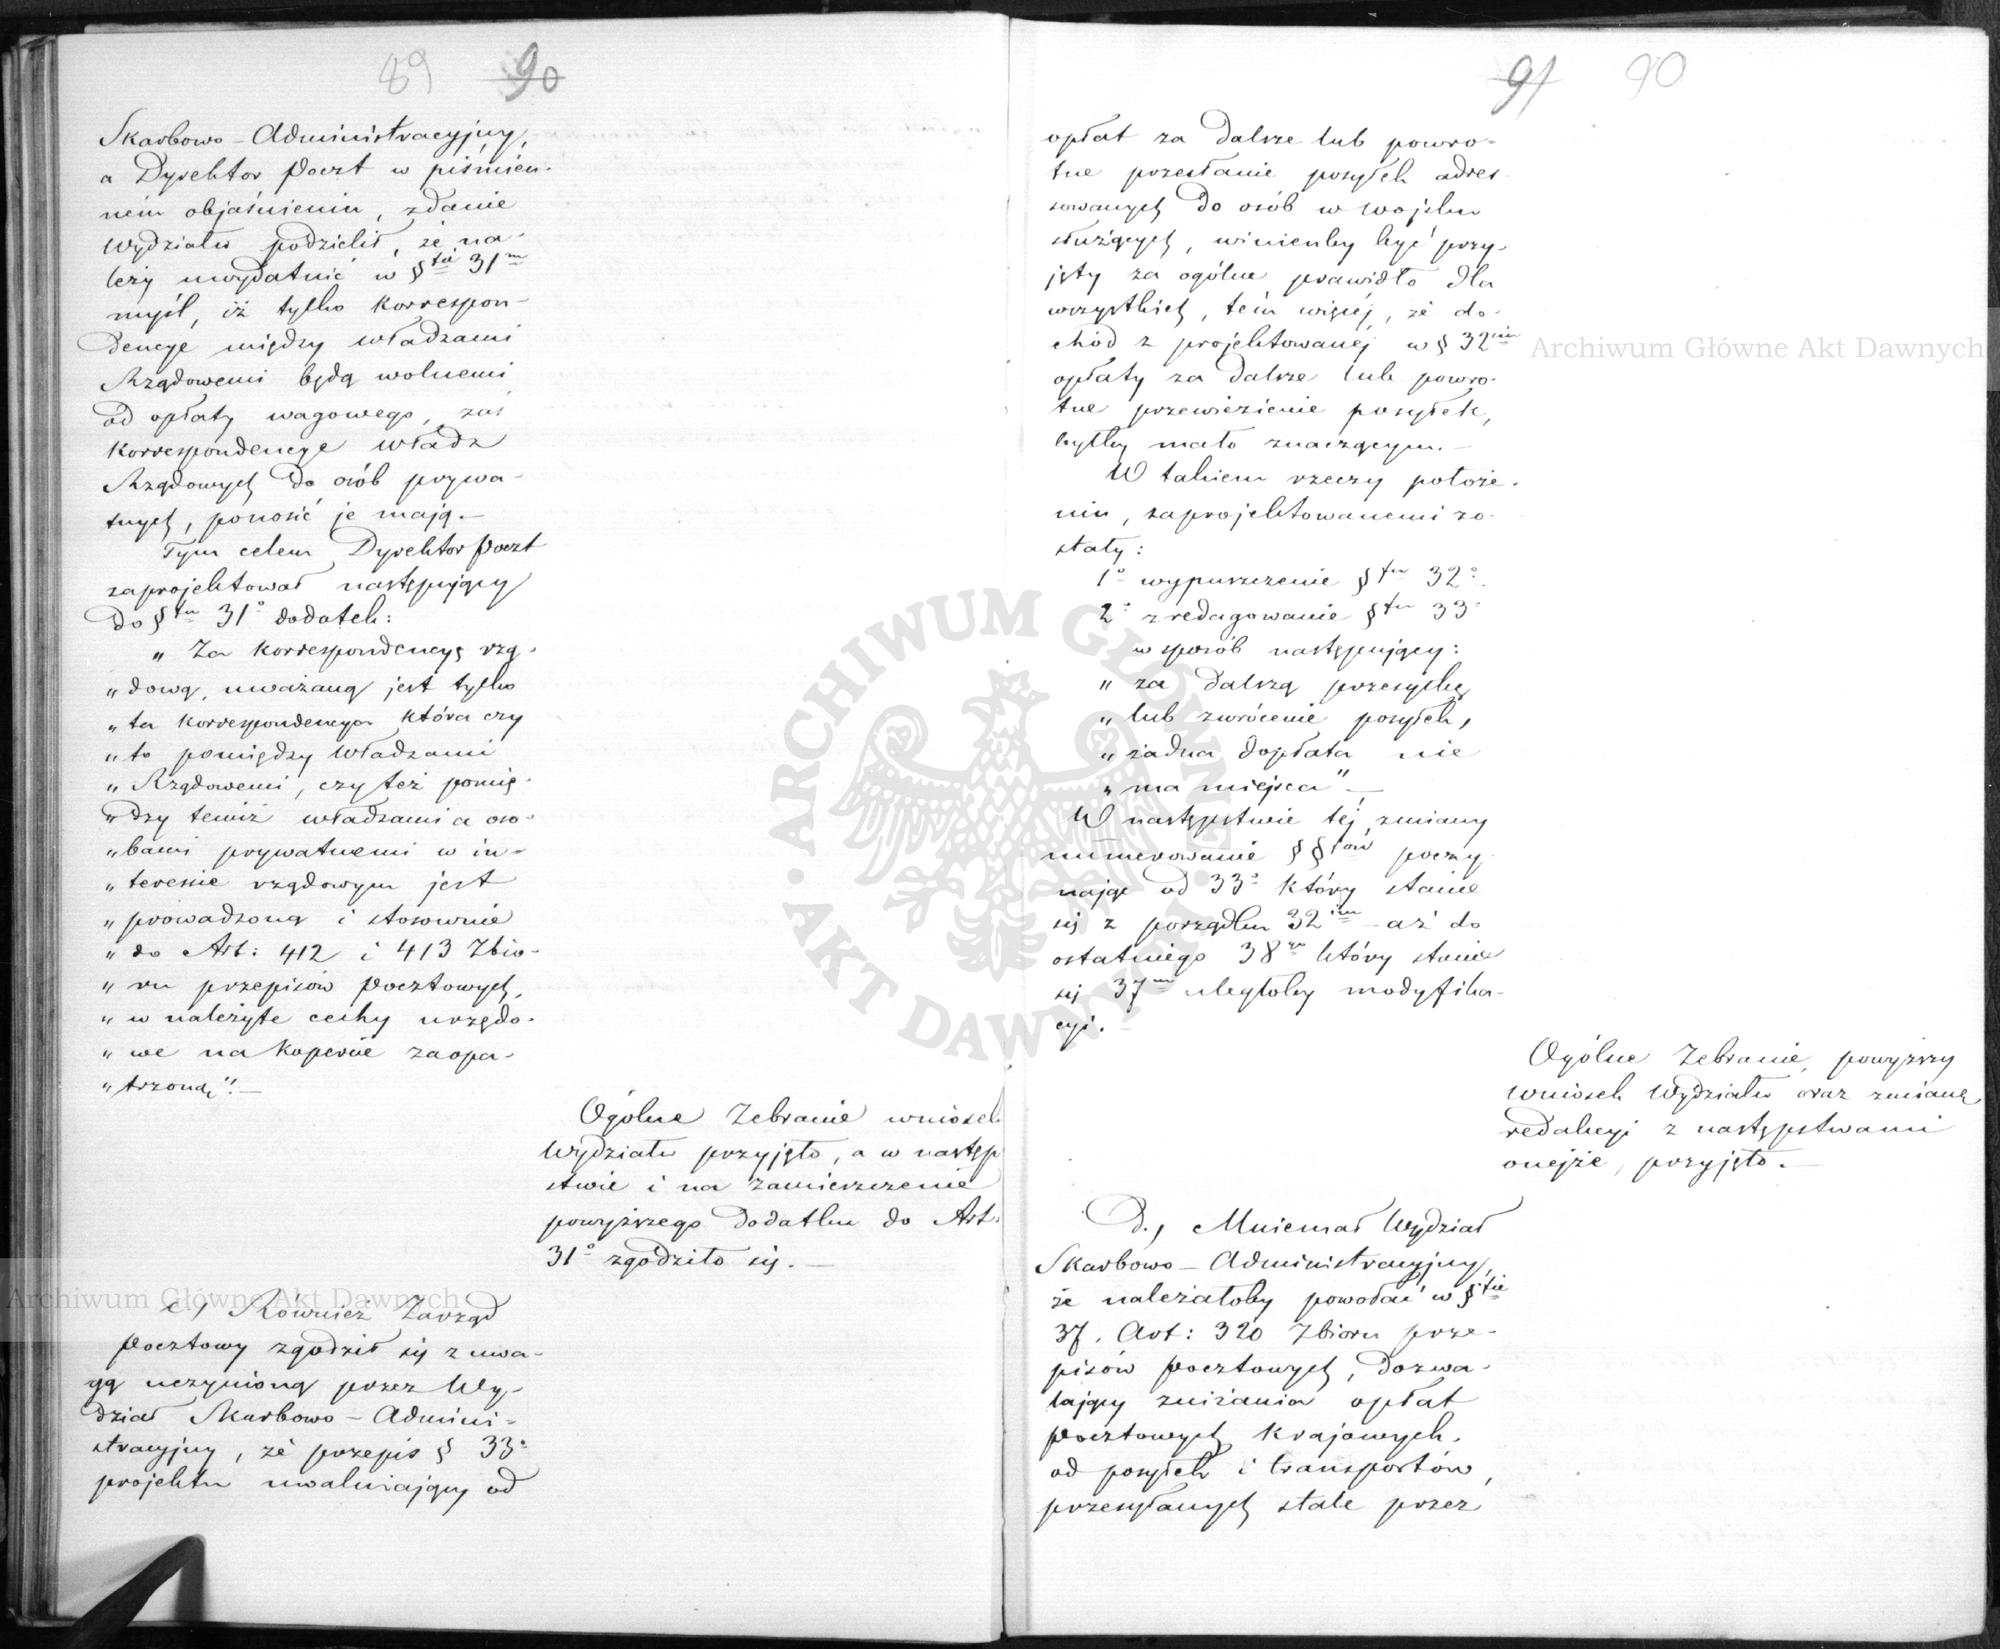 89 90
Skarbowo-Administracyjny,
a Dyrektor Poczt w piśmien-
ném objaśnieniu, zdanie
Wydziału podzielił, że na-
leży uwydatnić w §cie 31m
myśl, iż tylko korrespon-
dencye między władzami
Rządowemi będą wolnemi
od opłaty wagowego, zaś
korrespondencye władz
Rządowych do osób prywa-
tnych, ponosić je mają.—
Tym celem Dyrektor Poczt
zaprojektował następujący
do §fu 31° dodatek:
„Za korrespondencyę rzą-
„dową, uważaną jest tylko
„ta korrespondencya która czy
„to pomiędzy Władzami
„Rządowemi, czy też pomię-
„dzy temiż władzami a oso-
„bami prywatnemi w in-
„teresie rządowym jest
„prowadzoną i stosownie
„do Art: 412 i 413 Zbio-
„ru przepisów Pocztowych,
„w należyte cechy urzędo-
„we na kopercie zaopa-
„trzoną".—
Ogólne Zebranie wniosek
Wydziału przyjęło, a w następ
stwie i na zamieszczenie
powyższego dodatku do Art.
31° zgodziło się.—
c, Również Zarząd
Pocztowy zgodził się z uwa-
gą uczynioną przez Wy-
dział Skarbowo-Admini-
stracyjny, że przepis § 33°
projektu uwalniający od
91 90
opłat za dalsze lub powro-
tne przesłanie posyłek adres-
sowanych do osób w wojsku
służących, winienby być przy-
jęty za ogólne prawidło dla
wszystkich, tém więcéj, że do-
chód z projektowanéj w § 32im
opłaty za dalsze lub powro-
tne przewiezienie posyłek,
byłby mało znaczącym.—
W takiem rzeczy położe-
niu, zaprojektowanemi zo-
stały:
1° wypuszczenie §fu 32°
2° zredagowanie §fu 33°
w sposób następujący:
„za dalszą przesyłkę
„lub zwrócenie posyłek,
„żadna dopłata nie
„ma miejsca".—
W następstwie téj zmiany
numerowanie §§fów poczy-
nając od 33° który stanie
się z porządku 32im aż do
ostatniego 38go który stanie
się 37m uległoby modyfika-
cyi.—
Ogólne Zebranie, powyższy
wniosek Wydziału oraz zmianę
redakcyi z następstwami
onejże, przyjęło.—
D., Mniemał Wydział
Skarbowo-Administracyjny,
że należałoby powołać w §cie
37. Art: 320 Zbioru prze-
pisów Pocztowych, dozwa-
lający zniżania opłat
Pocztowych krajowych,
od posyłek i transportów,
przesyłanych stale przez
Archiwum Główne Akt Dawnych
Archiwum Główne Akt Dawnych
ARCHIWUM GŁÓWNE · AKT DAWNYCH ·